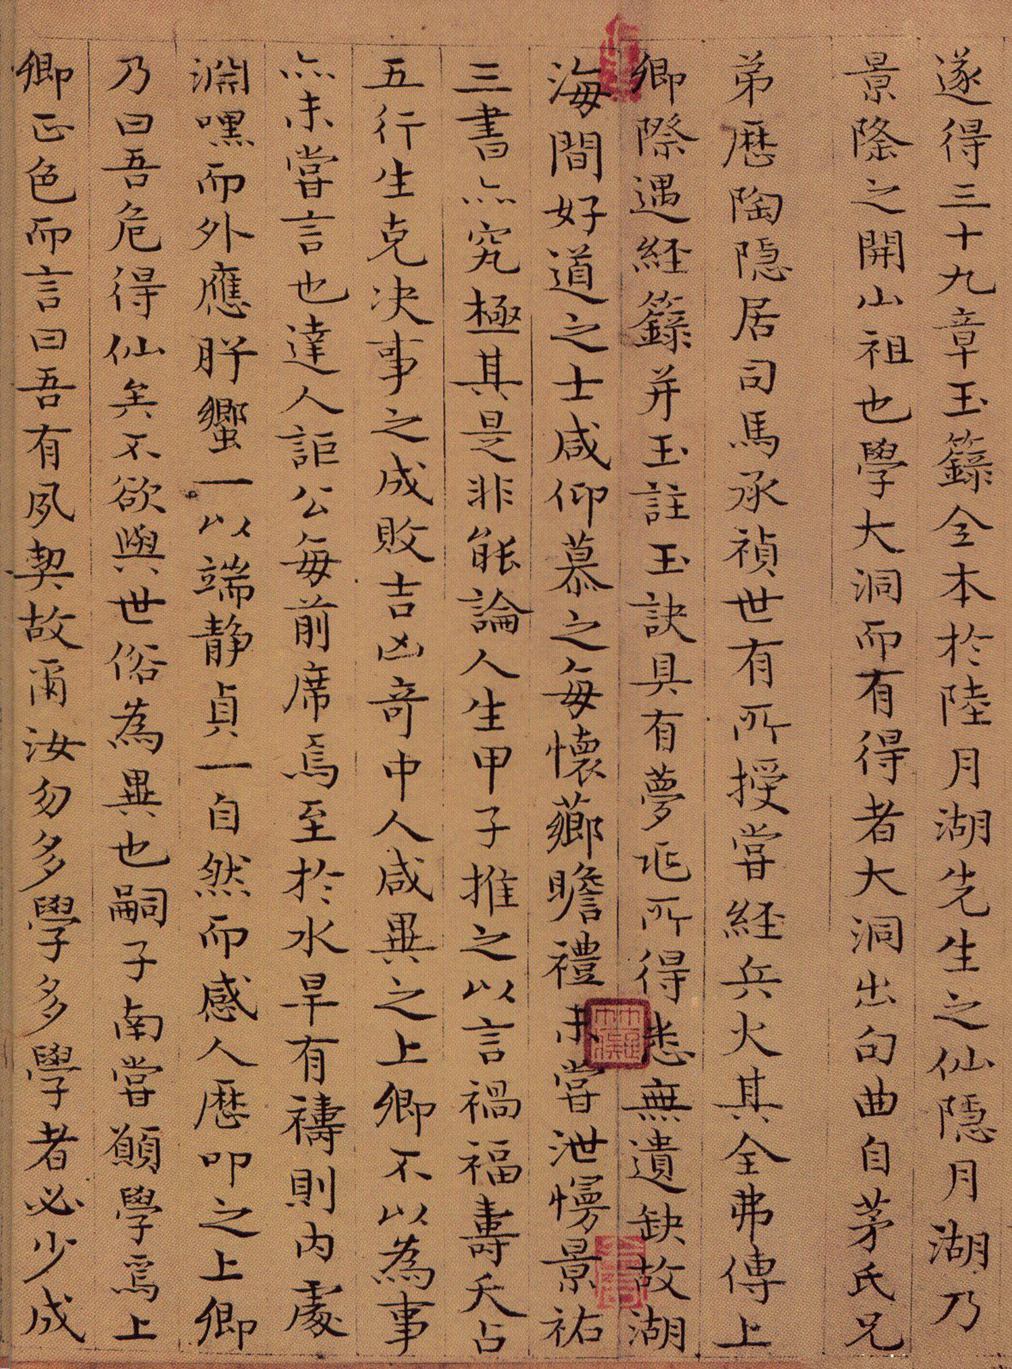 遂得三十九章玉籙全本於陸月湖先生之仙隱月湖乃
景隆之開山祖也學大洞而有得者大洞出句曲自茅氏兄
弟歷陶隱居司馬承禎世有所授嘗経兵火其全弗傳上
卿際遇経籙并玉註玉訣具有夢兆所得悉無遺缺故湖
海間好道之士咸仰慕之每懷薌瞻禮未嘗泄慢景祐
三書亦究極其是非能論人生甲子推之以言禍福壽夭占
五行生克决事之成敗吉凶竒中人咸異之上卿不以為事
亦未嘗言也達人詎公每前席焉至於水旱有禱則內處
淵嘿而外應肸蠁一以端静貞一自然而感人歷叩之上卿
乃曰吾危得仙矣不欲與世俗為異也嗣子南嘗願學焉上
卿正色而言曰吾有夙契故爾汝勿多學多學者必少成